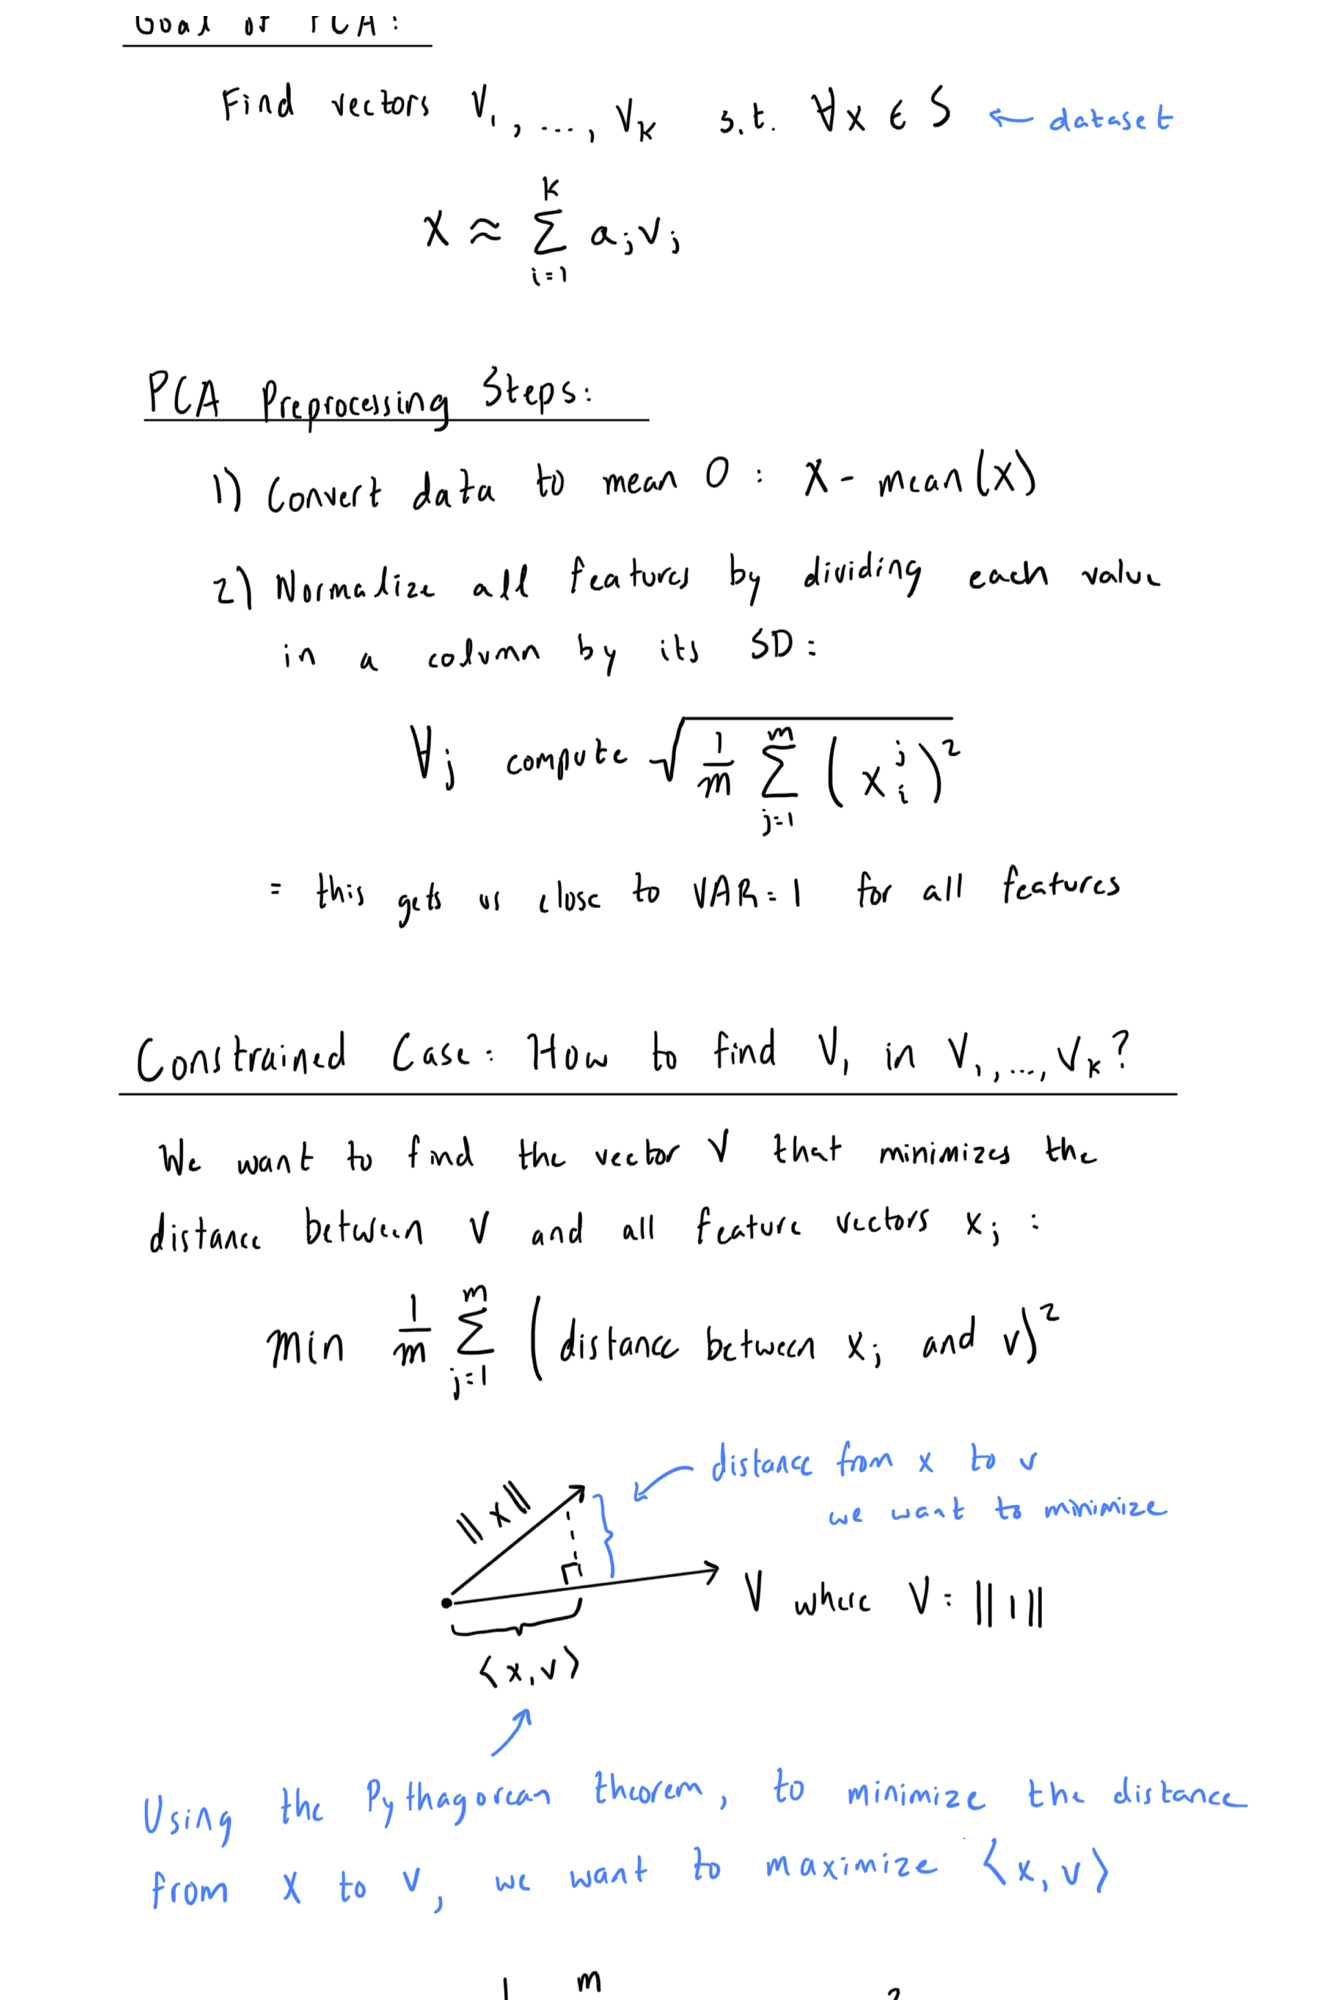 Goal of PCA:
Find vectors V₁, ..., Vₖ s.t. ∀x ∈ S ← dataset
x ≈ Σ_{i=1}^{k} aⱼvⱼ
PCA Preprocessing Steps:
1) Convert data to mean 0 : X - mean(x)
2) Normalize all features by dividing each value
in a column by its SD:
∀j compute √(1/m Σ_{j=1}^{m} (x_i^j)²)
= this gets us close to VAR=1 for all features
Constrained Case: How to find V₁ in V₁, ..., Vₖ?
We want to find the vector V that minimizes the
distance between V and all feature vectors xⱼ :
min 1/m Σ_{j=1}^{m} (distance between xⱼ and v)²
distance from x to v
we want to minimize
||x||
V where V = ||1||
⟨x,v⟩
Using the Pythagorean theorem, to minimize the distance
from X to V, we want to maximize ⟨x,v⟩